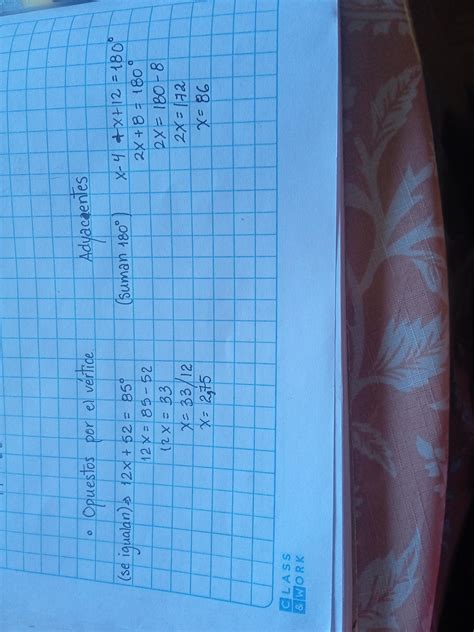 • Opuestos por el vértice
(se igualan) → 12x + 52 = 85°
12x = 85 - 52
12x = 33
x = 33/12
x = 2,75
Adyacentes
(suman 180°) x - 4 + x + 12 = 180°
2x + 8 = 180°
2x = 180 - 8
2x = 172
x = 86
CLASS
& WORK